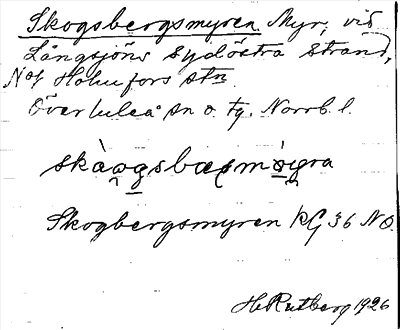 Skogsbergsmyren. Myr, vid
Långsjöns sydöstra strand,
N of Hohufors stn
Överluleå sn o. tg. Norrb. l.
skàogsbærmòyra
Skogbergsmyren KG 36 NO.
H. Rutberg 1926